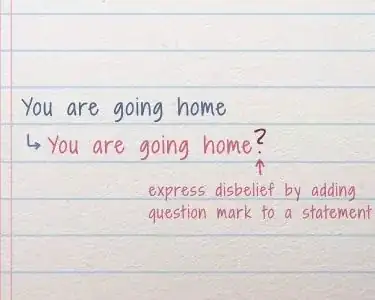 You are going home
↳ You are going home?
↑
express disbelief by adding
question mark to a statement